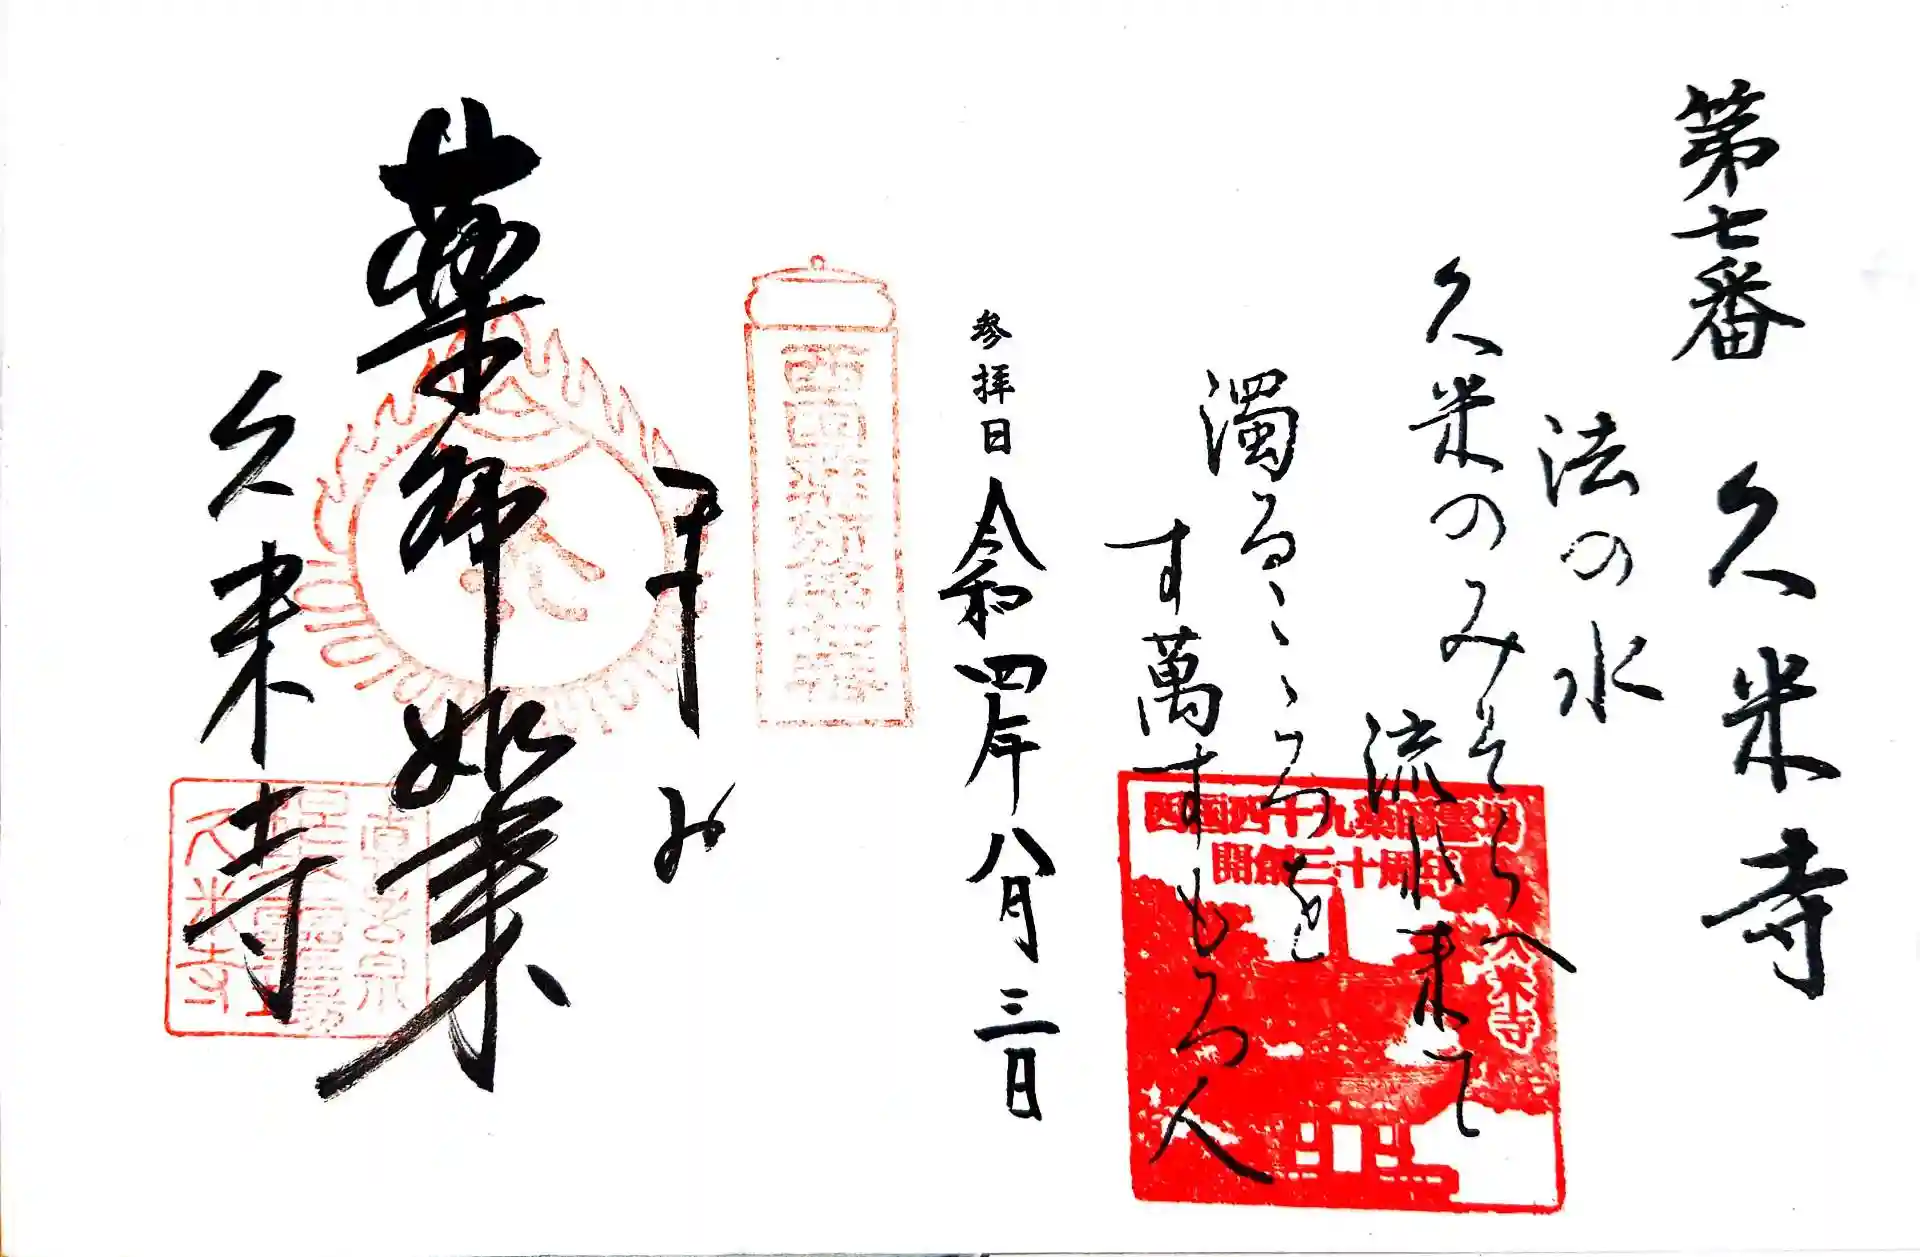 第七番 久米寺
法の水
久米のみそらへ
流れ来て
濁るこゝろを
す萬すもろ人
西国四十九薬師霊場
開創三十周年
久米寺
参拝日 令和四年八月三日
西国薬師第七番
奉拝
薬師如来
久米寺
久米寺